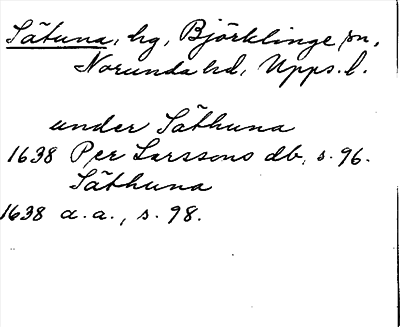 Sätuna, hg, Björklinge sn,
Norunda hd, Upps. l.
under Säthuna
1638 Per Larssons db, s. 96.
Säthuna
1638 a.a., s. 98.